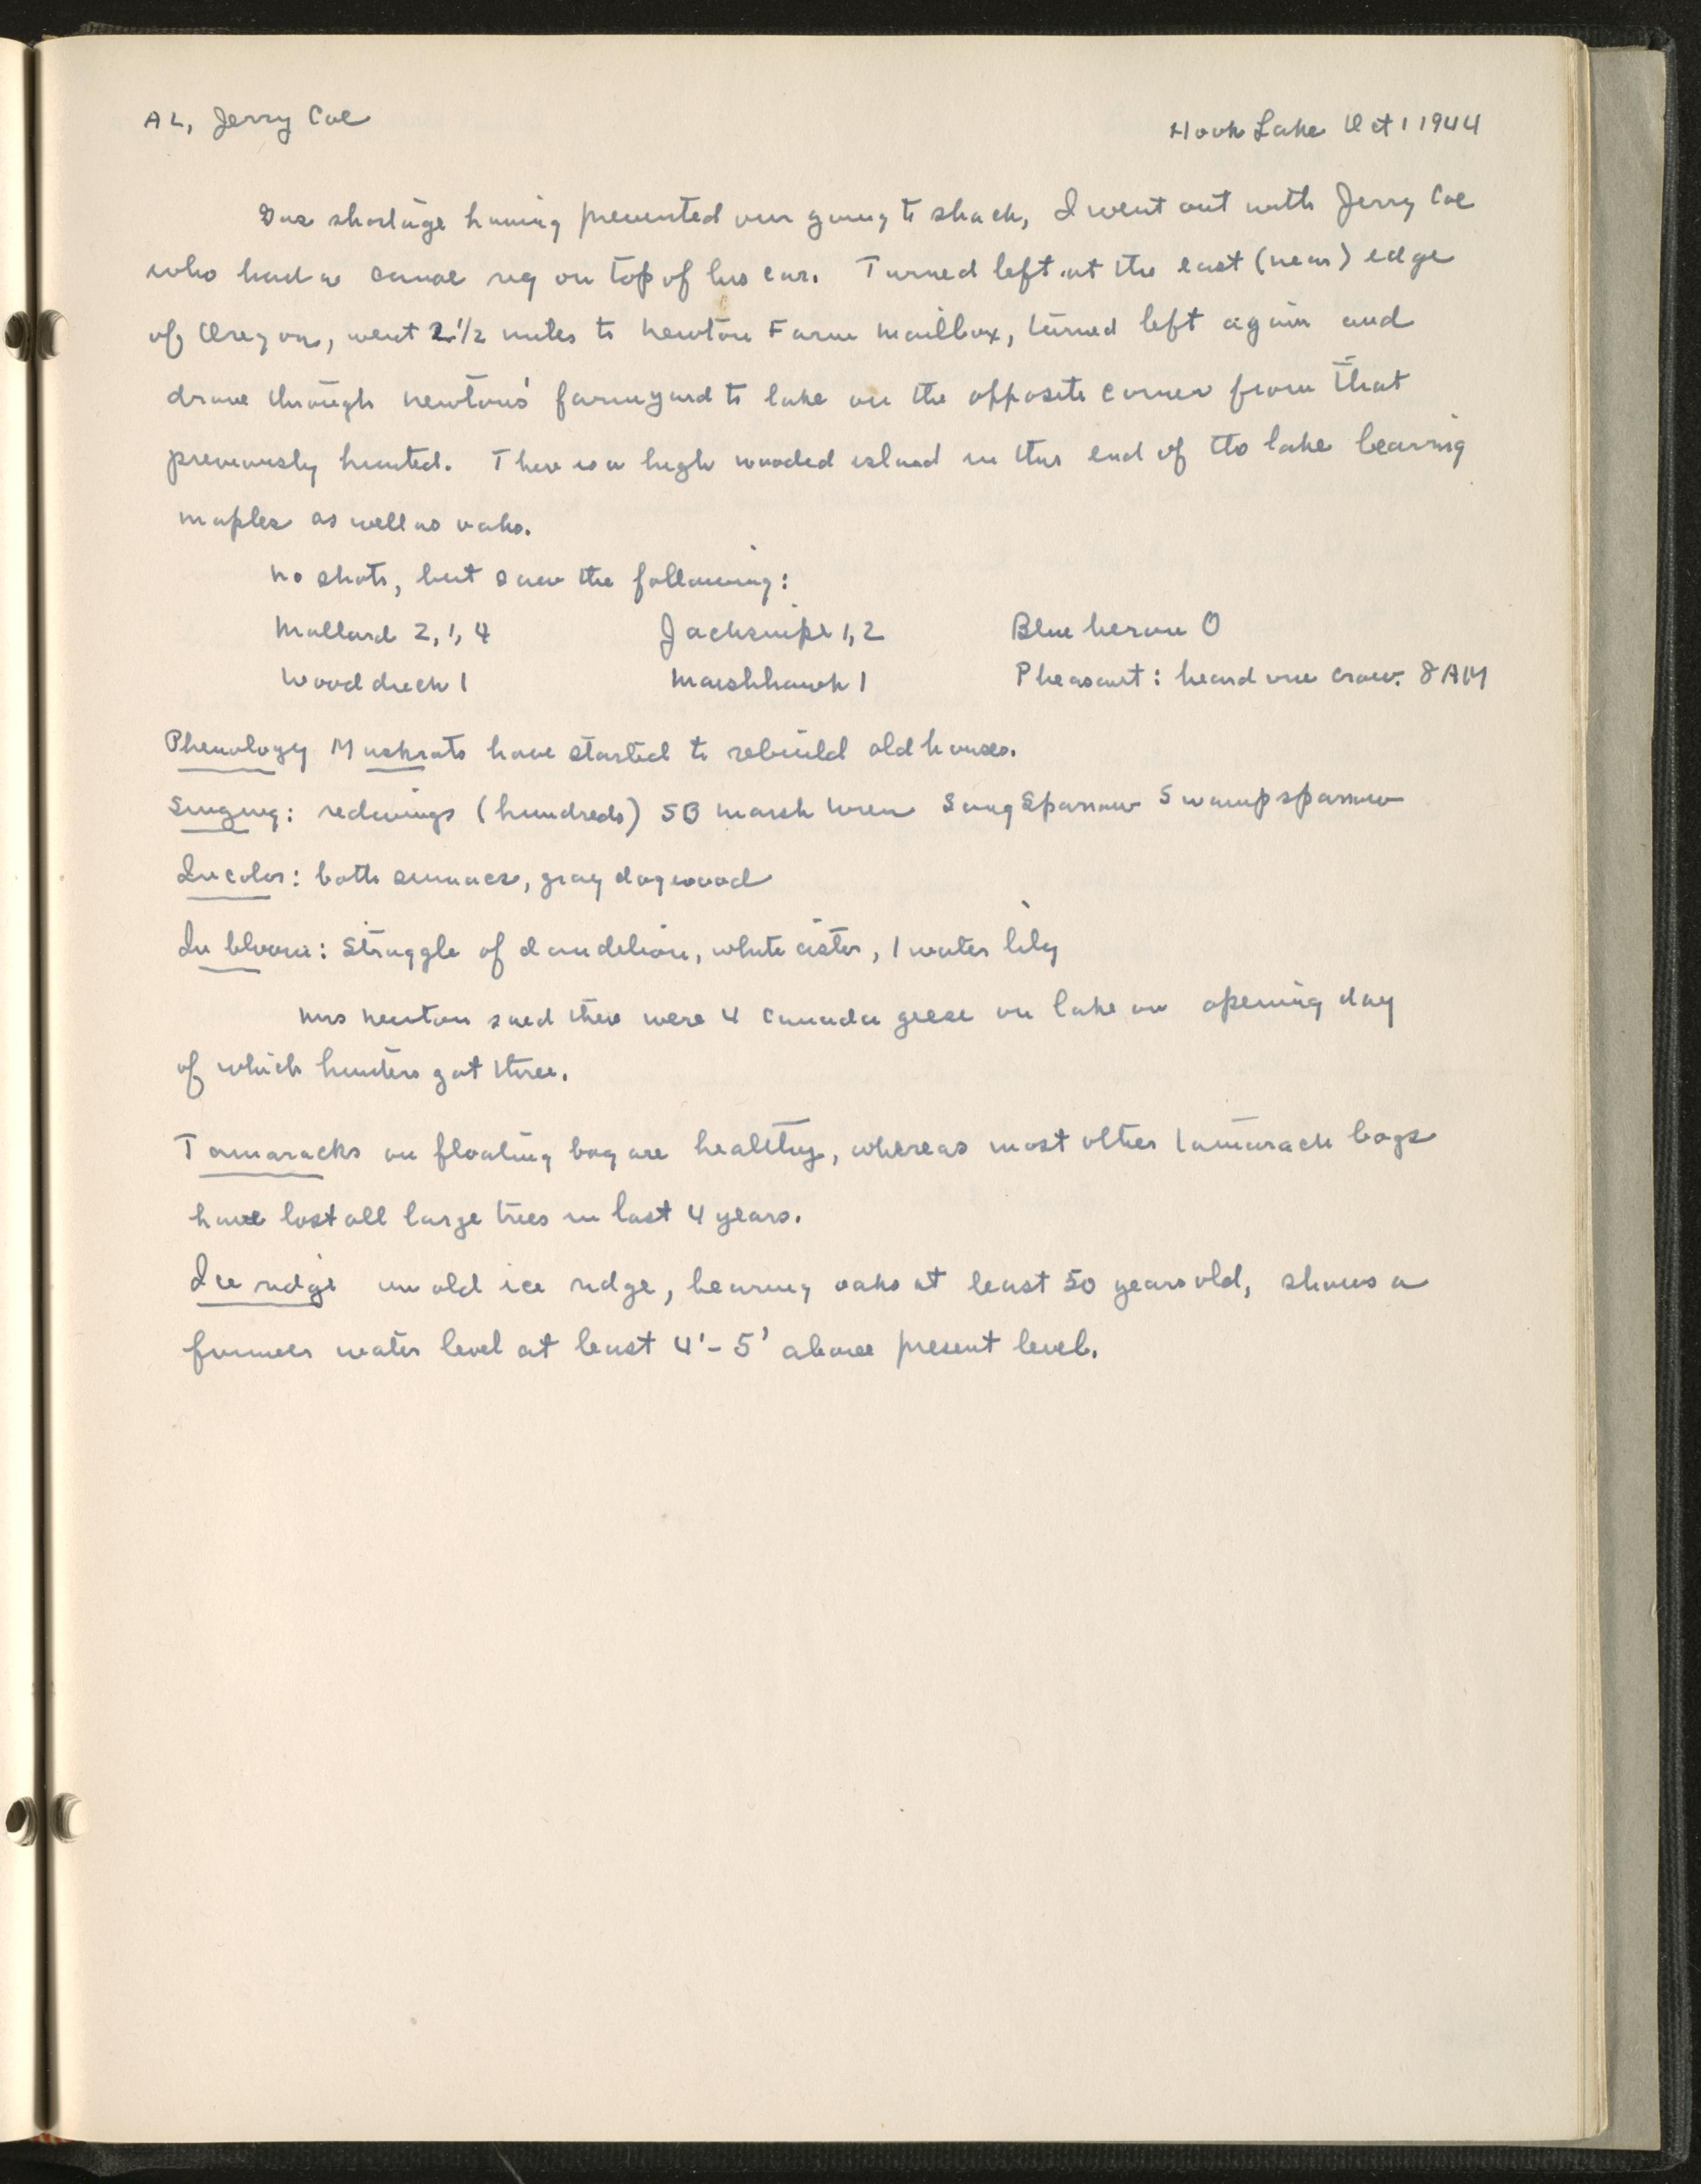 AL, Jerry Coe
Hook Lake Oct 1 1944
Gas shortage having prevented our going to shack, I went out with Jerry Coe
who had a canoe rig on top of his car. Turned left at the east (near) edge
of Oregon, went 2 1/2 miles to Newton Farm mailbox, turned left again and
drove through Newtons' farmyard to lake on the opposite corner from that
previously hunted. There is a high wooded island in this end of the lake bearing
maples as well as oaks.
No shots, but saw the following:
Mallard 2, 1, 4 Jacksnipe 1, 2 Blue heron 0
Wood duck 1 Marshhawk 1 Pheasant: heard one crow. 8 AM
Phenology Muskrats have started to rebuild old houses.
Singing: redwings (hundreds) SB marsh wren Song Sparrow Swamp sparrow
In color: both sumacs, gray dogwood
In bloom: Straggle of dandelion, white aster, 1 water lily
Mrs Newton said there were 4 Canada geese on lake on opening day
of which hunters got three.
Tamaracks on floating bog are healthy, whereas most other tamarack bogs
have lost all large trees in last 4 years.
Ice ridge an old ice ridge, bearing oaks at least 50 years old, shows a
former water level at least 4'-5' above present level.